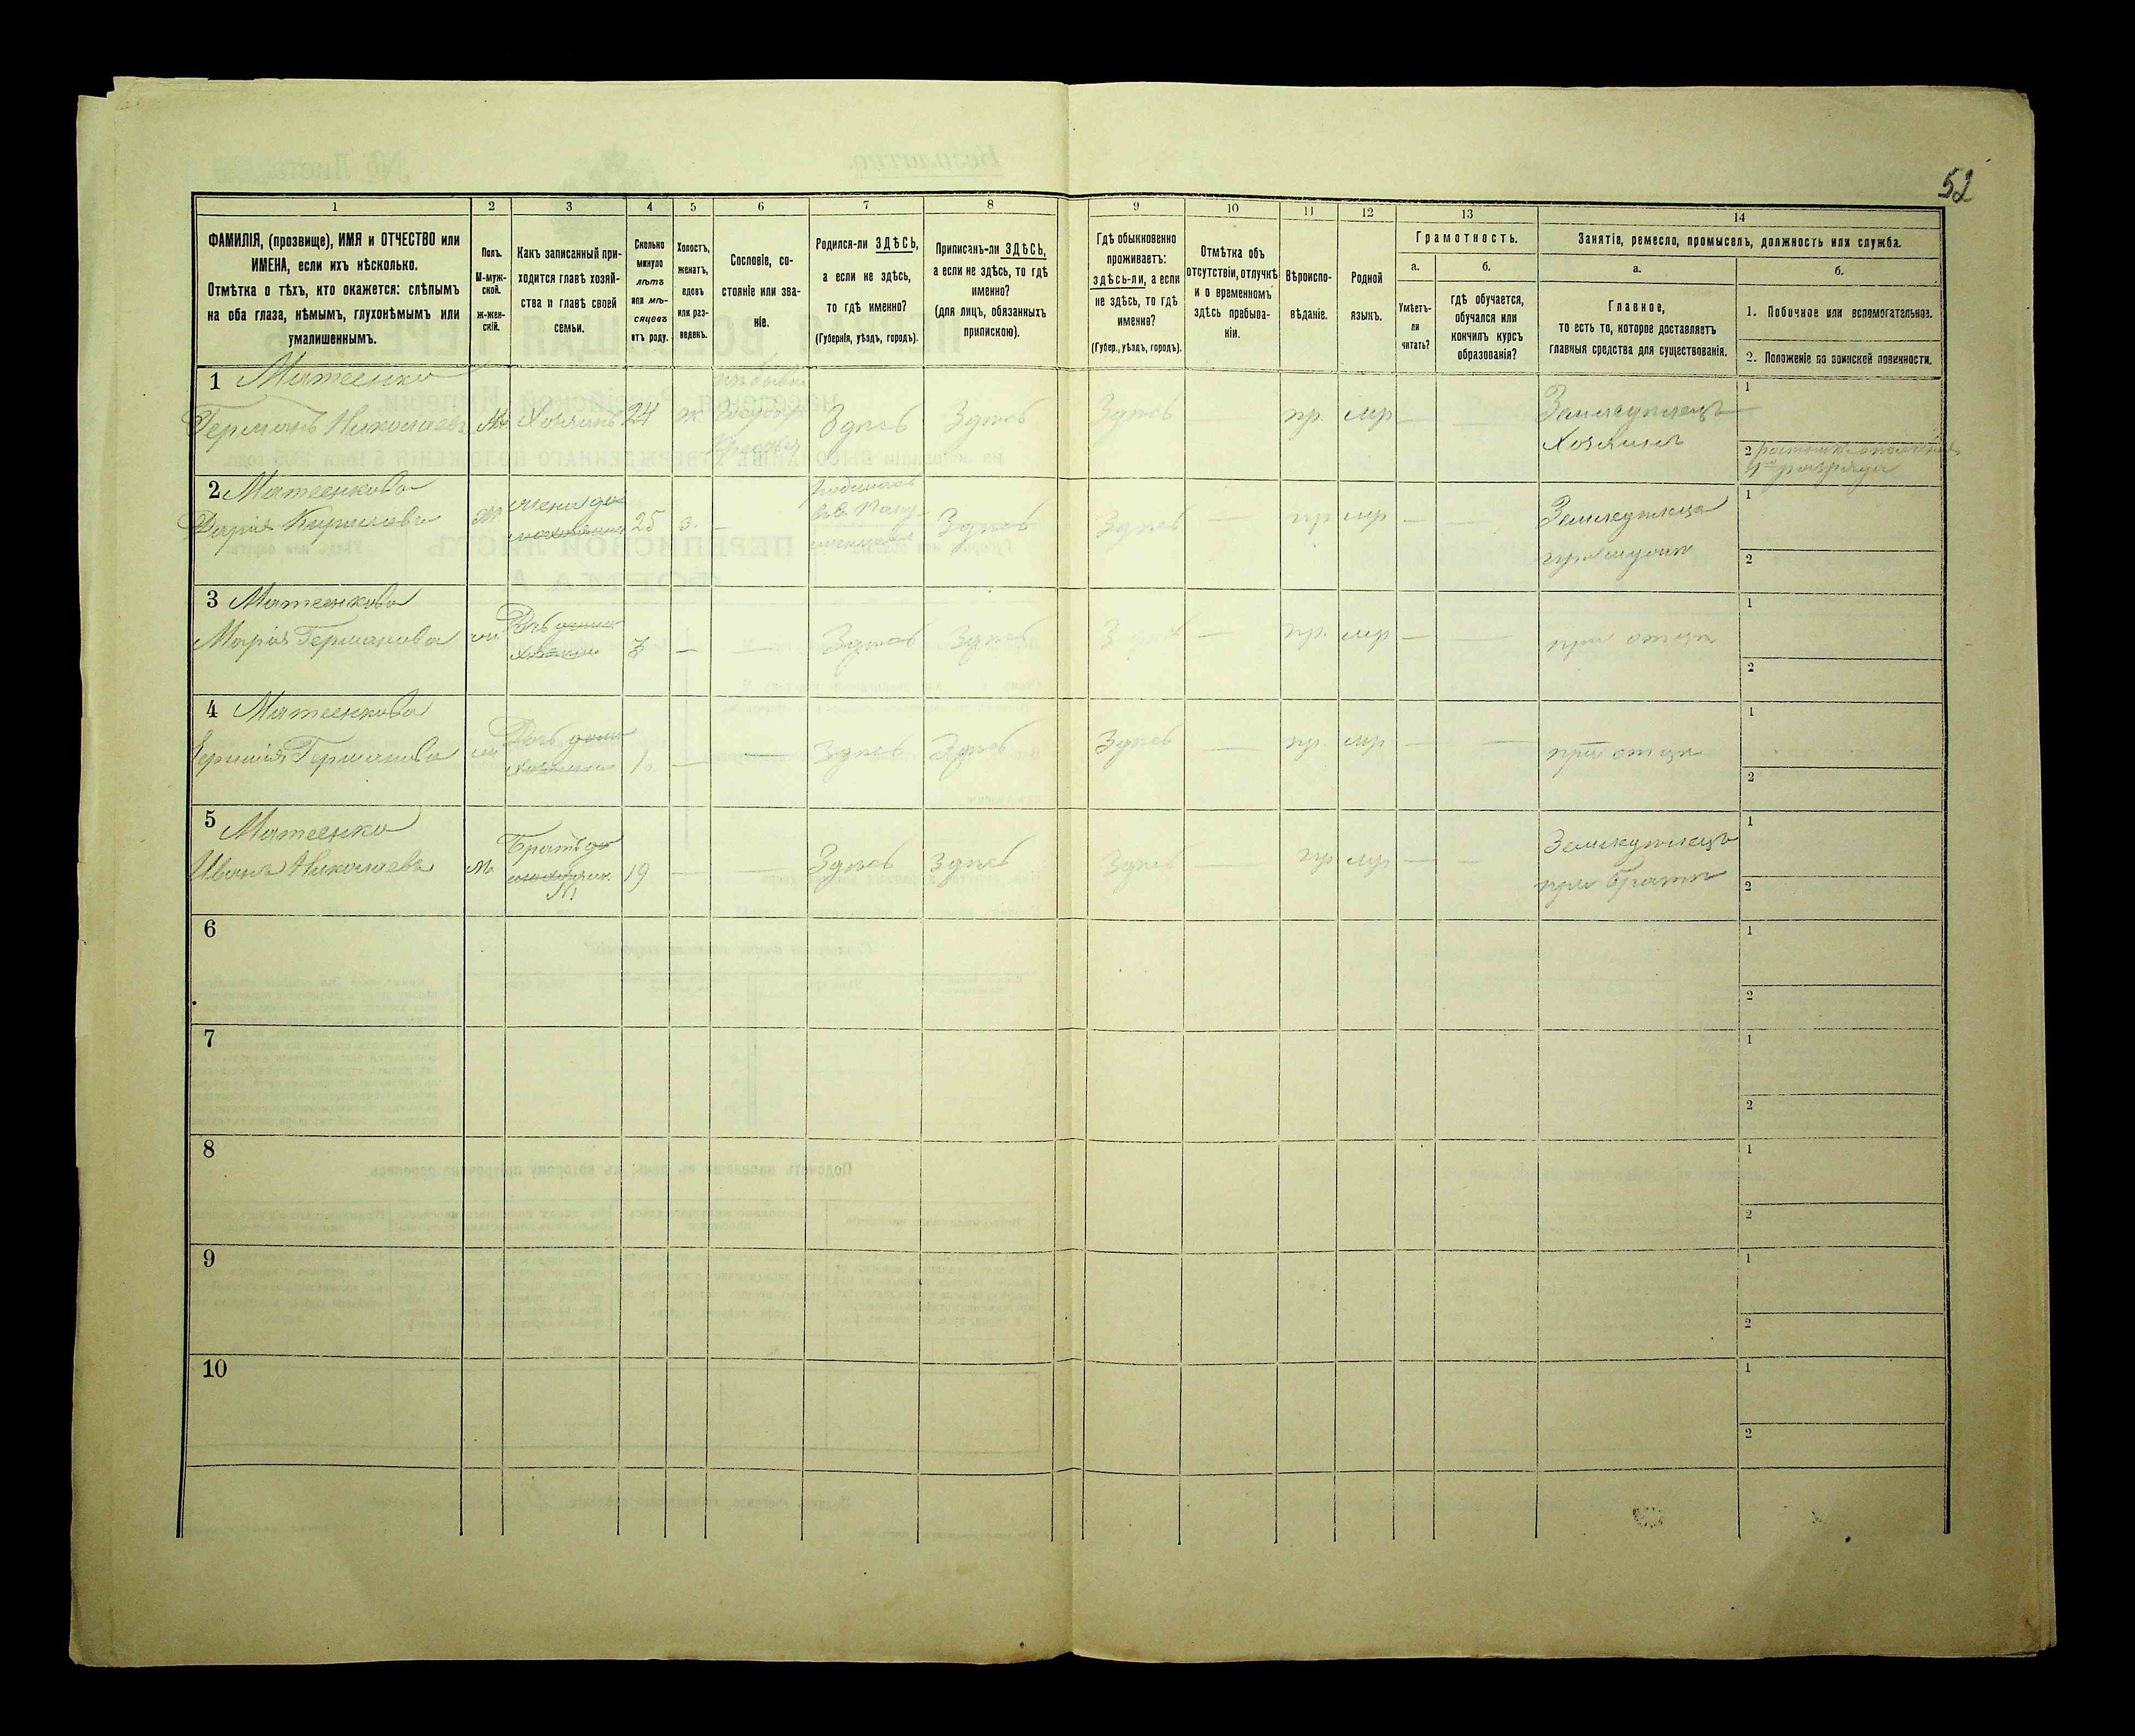 52
1
2
3
4
5
6
7
8
9
10
11
12
13
14
ФАМИЛІЯ, (прозвище), ИМЯ и ОТЧЕСТВО или
ИМЕНА, если ихъ нѣсколько.
Отмѣтка о тѣхъ, кто окажется: слѣпымъ
на оба глаза, нѣмымъ, глухонѣмымъ или
умалишеннымъ.
Полъ.
М-муж-
ской.
ж-жен-
скій.
Какъ записанный при-
ходится главѣ хозяй-
ства и главѣ своей
семьи.
Сколько
минуло
лѣтъ
или мѣ-
сяцевъ
отъ роду.
Холостъ,
женатъ,
вдовъ
или раз-
веденъ.
Сословіе, со-
стояніе или зва-
ніе.
Родился-ли ЗДѢСЬ,
а если не здѣсь,
то гдѣ именно?
(Губернія, уѣздъ, городъ).
Приписанъ-ли ЗДѢСЬ,
а если не здѣсь, то гдѣ
именно?
(для лицъ, обязанныхъ
припискою).
Гдѣ обыкновенно
проживаетъ:
здѣсь-ли, а если
не здѣсь, то гдѣ
именно?
(Губер., уѣздъ, городъ).
Отмѣтка объ
отсутствіи, отлучкѣ
и о временномъ
здѣсь пребыва-
ніи.
Вѣроиспо-
вѣданіе.
Родной
языкъ.
Грамотность.
а.
Умѣетъ-
ли
читать?
б.
гдѣ обучается,
обучался или
кончилъ курсъ
образованія?
Занятіе, ремесло, промыселъ, должность или служба.
а.
Главное,
то есть то, которое доставляетъ
главныя средства для существованія.
б.
1. Побочное или вспомогательное.
2. Положеніе по воинской повинности.
1 Матеенко
Германъ Николаевъ М Хозяинъ 24 ж. Здѣсь Здѣсь Здѣсь пр. мр — Земледѣлецъ
Хозяинъ
1
2
2 Матеенкова
Дарія Кирилова ж жена 25 з. — Здѣсь Здѣсь — пр мр — Земледѣлица
при мужѣ
1
2
3 Матеенкова
Марія Германова ж Дочь 3 — — Здѣсь Здѣсь — пр. мр — — при отцѣ
1
2
4 Матеенкова
Германова ж Дочь 1 — — Здѣсь Здѣсь Здѣсь — пр мр — — при отцѣ
1
2
5 Матеенко
Иванъ Николаевъ М Братъ 19 — — Здѣсь Здѣсь Здѣсь — пр мр — — Земледѣлецъ
при братѣ
1
2
6
1
2
7
1
2
8
1
2
9
1
2
10
1
2